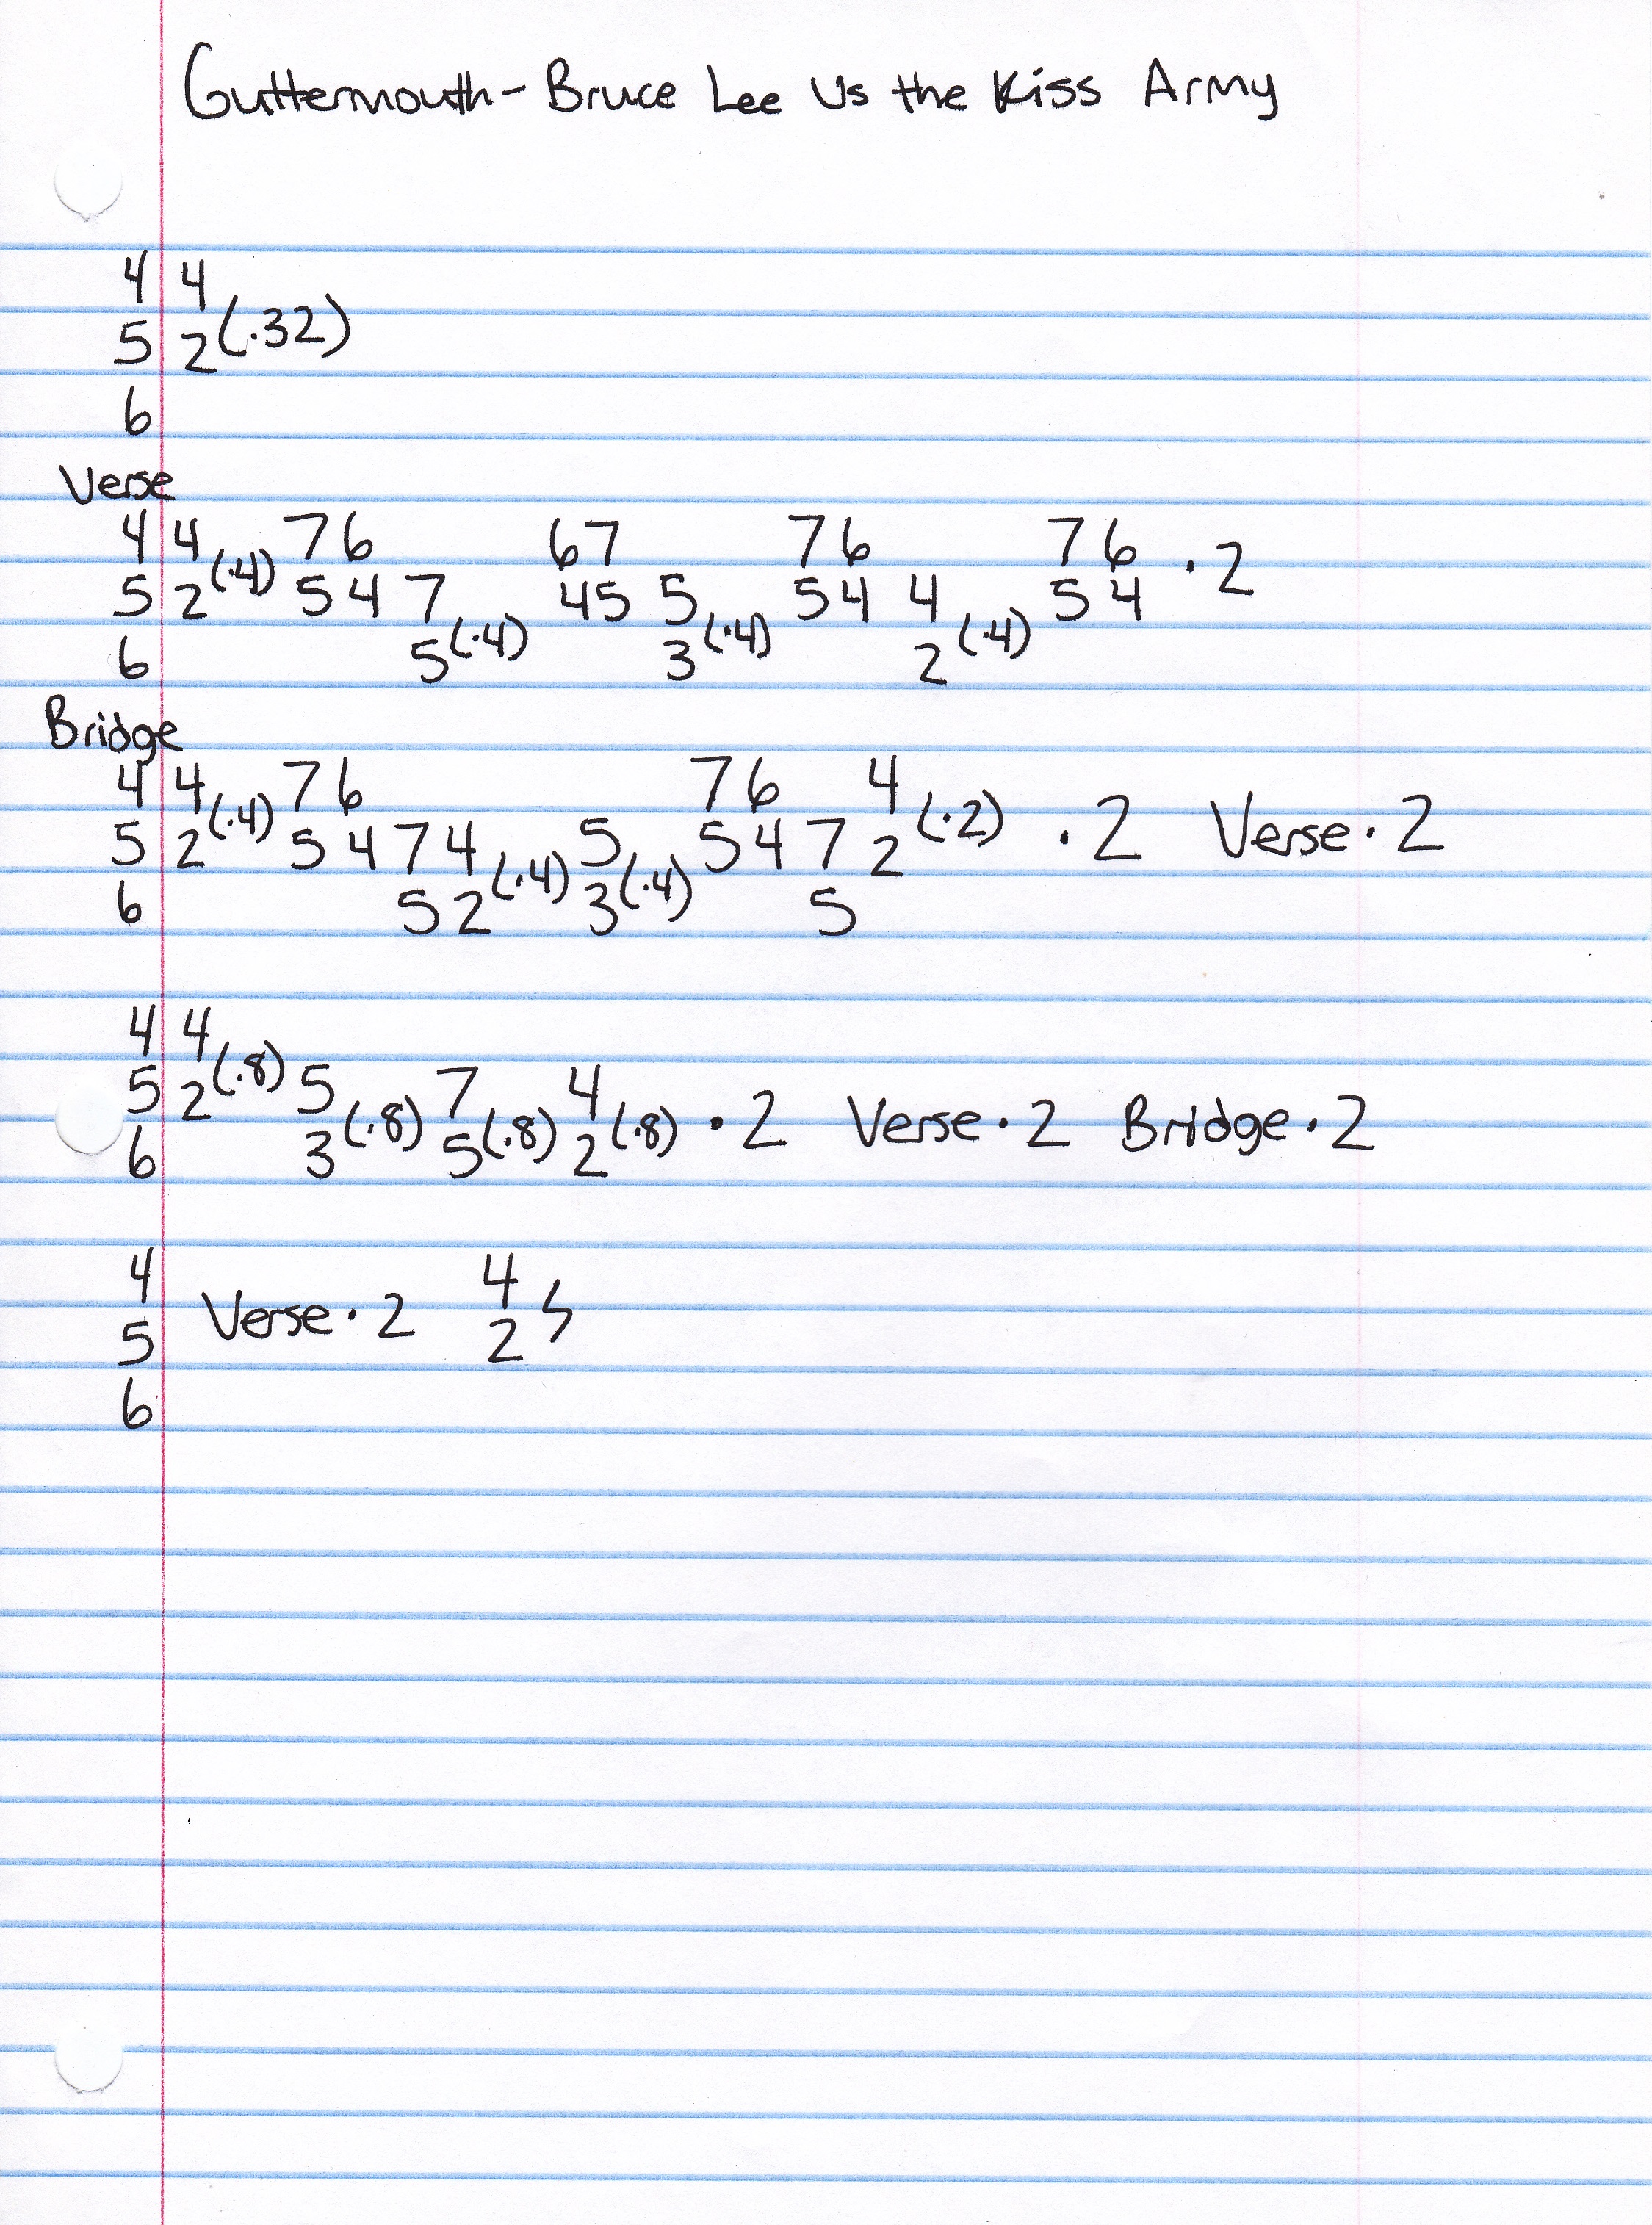 Guttermouth - Bruce Lee Vs the Kiss Army
4 4
5 2 (·32)
6
Verse
4 4 7 6 6 7 7 6 7 6 · 2
5 2 (·4) 5 4 7 4 5 5 5 4 4 5 4
6 5 (·4) 3 (·4) 2 (·4)
Bridge
4 4 7 6 7 6 4
5 2 (·4) 5 4 7 4 5 5 4 7 2 (·2) · 2 Verse · 2
6 5 2 (·4) 3 (·4) 5
4 4
5 2 (·8) 5 7 4
6 3 (·8) 5 (·8) 2 (·8) · 2 Verse · 2 Bridge · 2
4 4
5 Verse · 2 2
6